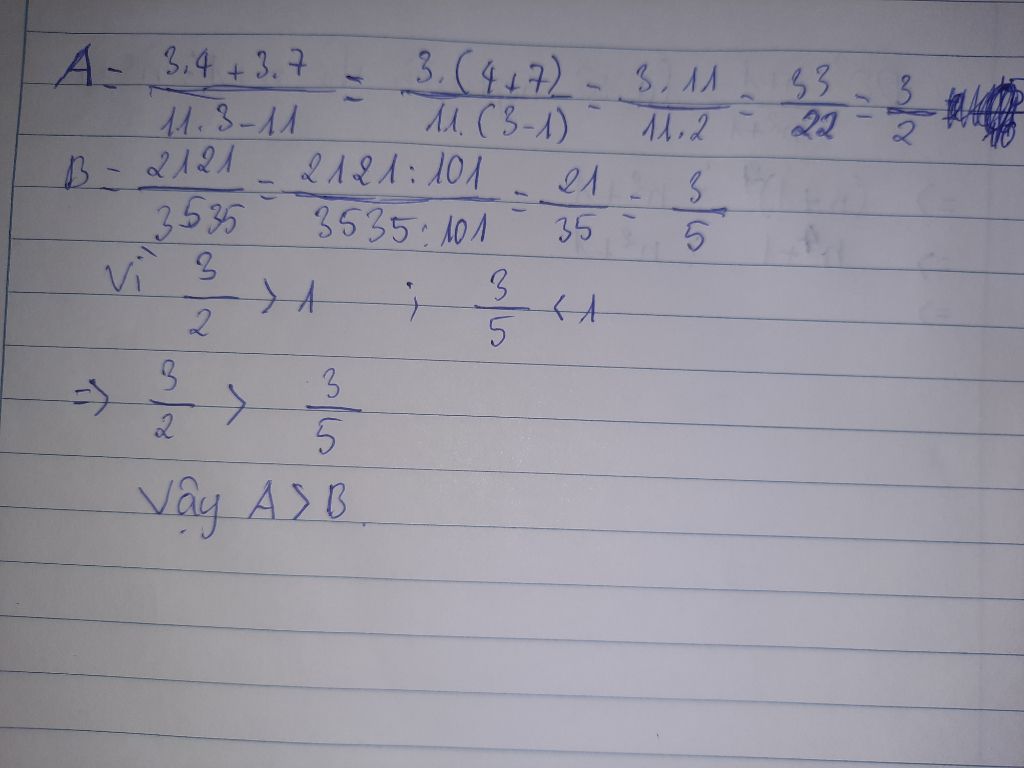 A = 3.4 + 3.7 / 11.3 - 11 = 3.(4+7) / 11.(3-1) = 3.11 / 11.2 = 33 / 22 = 3 / 2
B = 2121 / 3535 = 2121:101 / 3535:101 = 21 / 35 = 3 / 5
Vì 3 / 2 > 1 ; 3 / 5 < 1
=> 3 / 2 > 3 / 5
Vậy A > B.